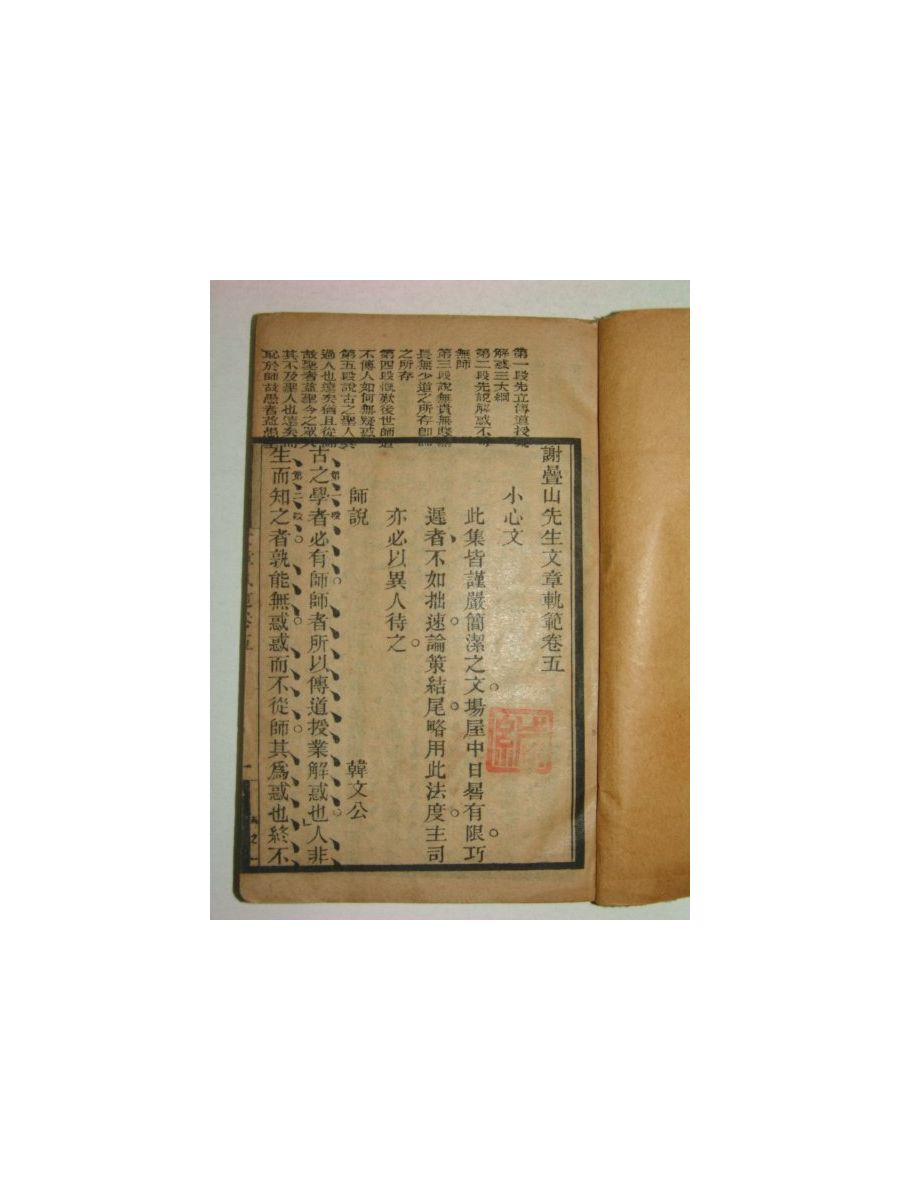 第一段先立傳道授業
解惑三大綱
第二段先說解惑不可
無師
第三段說無貴無賤無
長無少道之所存卽師
之所存
第四段慨歎後世師道
不傳人如何無疑惑
第五段說古之聖人其
過人也遠矣猶且從師
故聖者益聖今之眾人
其不及聖人也遠矣而
恥於師故愚者益愚
謝疊山先生文章軌範卷五
小心文
此集皆謹嚴簡潔之文場屋中日晷有限巧
遲者不如拙速論策結尾略用此法度主司
亦必以異人待之
師說 韓文公
第一段
古之學者必有師師者所以傳道授業解惑也人非
第二段
生而知之者孰能無惑惑而不從師其爲惑也終不